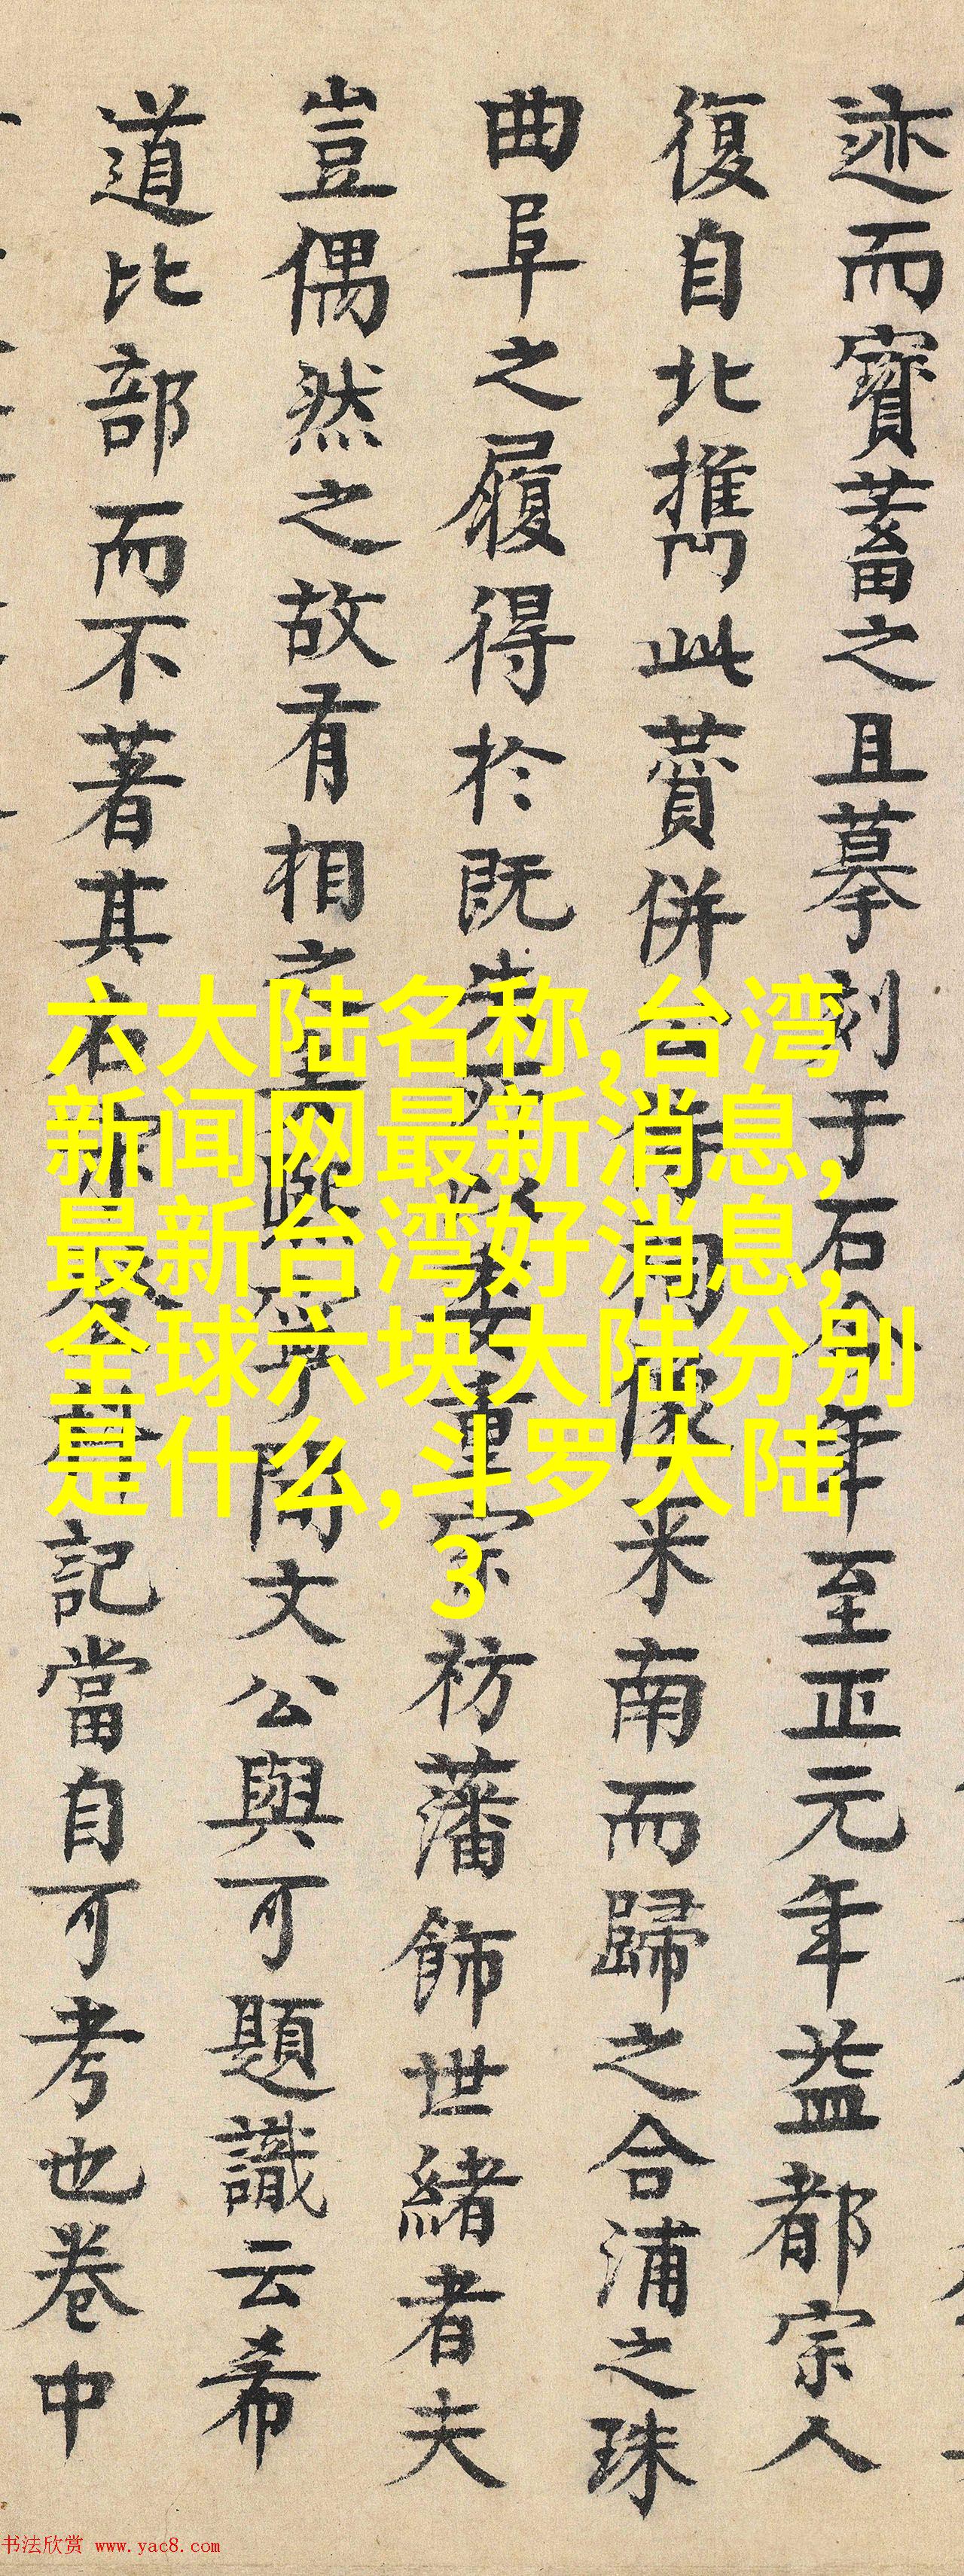 迹而寳蓄之且摹刻于石今年至正元年益都宗人
復自北携此賛併
南而歸之合浦之珠
曲阜之履得於既
祊藩飾世緒者夫
豈偶然之故有相之
文公與可題識云希
道比部而不著其
記當自可考也卷中
六大陆名称,台湾
新闻网最新消息,
最新台湾好消息,
全球六块大陆分别
是什么,斗罗大陆
3
书法欣赏 www.yac8.com